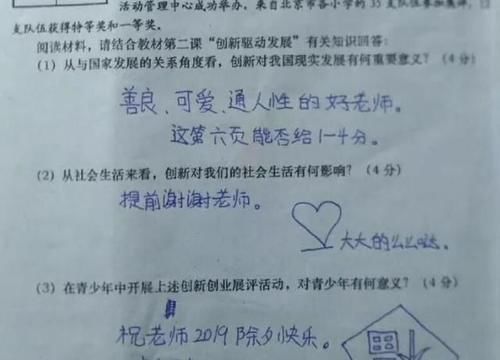 活动管理中心成功举办，来自北京市各小学的35支队伍参加展评，
支队伍获得特等奖和一等奖。
阅读材料，请结合教材第二课“创新驱动发展”有关知识回答：
(1) 从与国家发展的关系角度看，创新对我国现实发展有何重要意义？(4分)
善良、可爱、通人性的好老师。
这第六页能否给1-4分。
(2) 从社会生活来看，创新对我们的社会生活有何影响？(4分)
提前谢谢老师。
大大的么么哒。
(3) 在青少年中开展上述创新创业展评活动，对青少年有何意义？(4分)
祝老师2019除夕快乐。